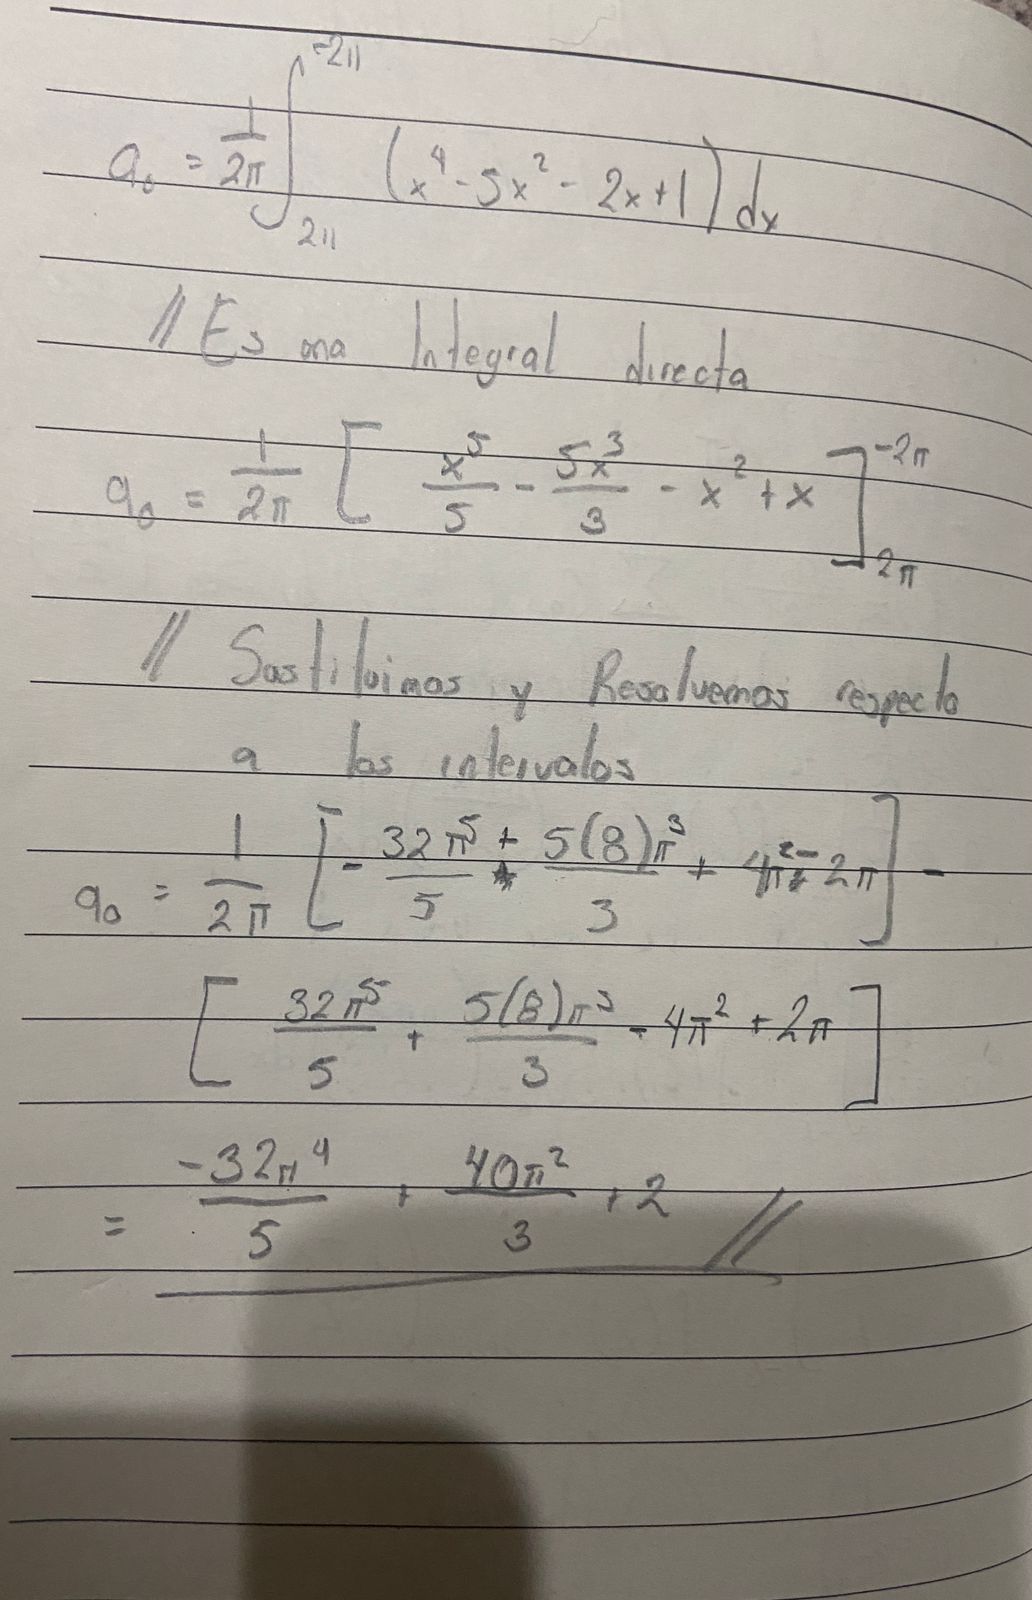 a₀ = 1/2π ∫_{2π}^{-2π} (x⁴ - 5x² - 2x + 1) dx
// Es una Integral directa
a₀ = 1/2π [ x⁵/5 - 5x³/3 - x² + x ]_{2π}^{-2π}
// Sustituimos y Resolvemos respecto
a los intervalos
a₀ = 1/2π [ - 32π⁵/5 + 5(8)π³/3 + 4π² - 2π ] -
[ 32π⁵/5 + 5(8)π³/3 - 4π² + 2π ]
= -32π⁴/5 + 40π²/3 + 2 //